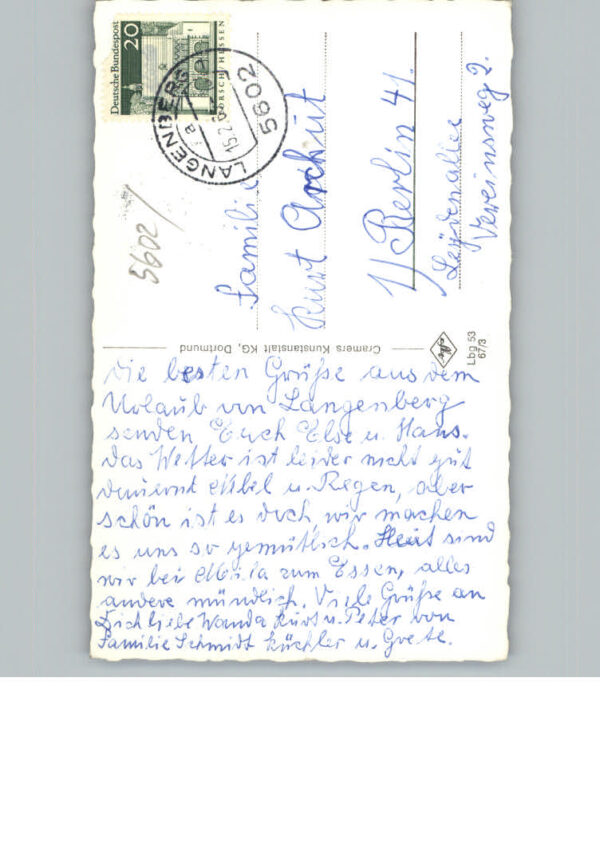 Deutsche Bundespost
20
LORSCH/HESSEN
LANGENBERG
5602
5602/
Familie
Kurt Archut
1/Berlin 41.
Leydenallee
Vereinsweg 2.
Cramers Kunstanstalt KG, Dortmund
Lbg 53
67/3
Die besten Grüße aus dem
Urlaub von Langenberg
senden Euch Else u. Hans.
Das Wetter ist leider nicht gut
dauernd Nebel u. Regen, aber
schön ist es doch, wir machen
es uns so gemütlich. Heut sind
wir bei zum Essen, alles
andere mündlich. Viele Grüße an
Dich liebe Wanda Kurt u. Peter von
Familie Schmidt Küchler u. Grete.